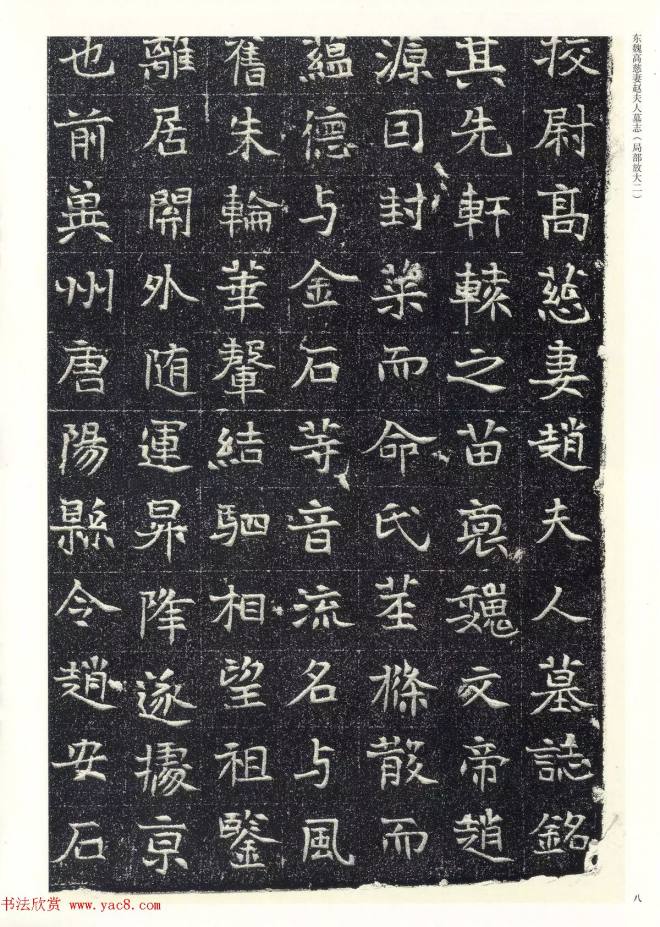 东魏高慈妻赵夫人墓志（局部放大二）
挍尉髙慈妻趙夫人墓誌銘
其先軒轅之苗裔魏文帝趙
源囙封而命氏莖條散而
蘊德与金石等音流名与風
舊朱輪華輦結駟相望祖鑒
離居開外随運昇降遂據京
也前兾州唐陽縣令趙安石
八
书法欣赏 www.yac8.com